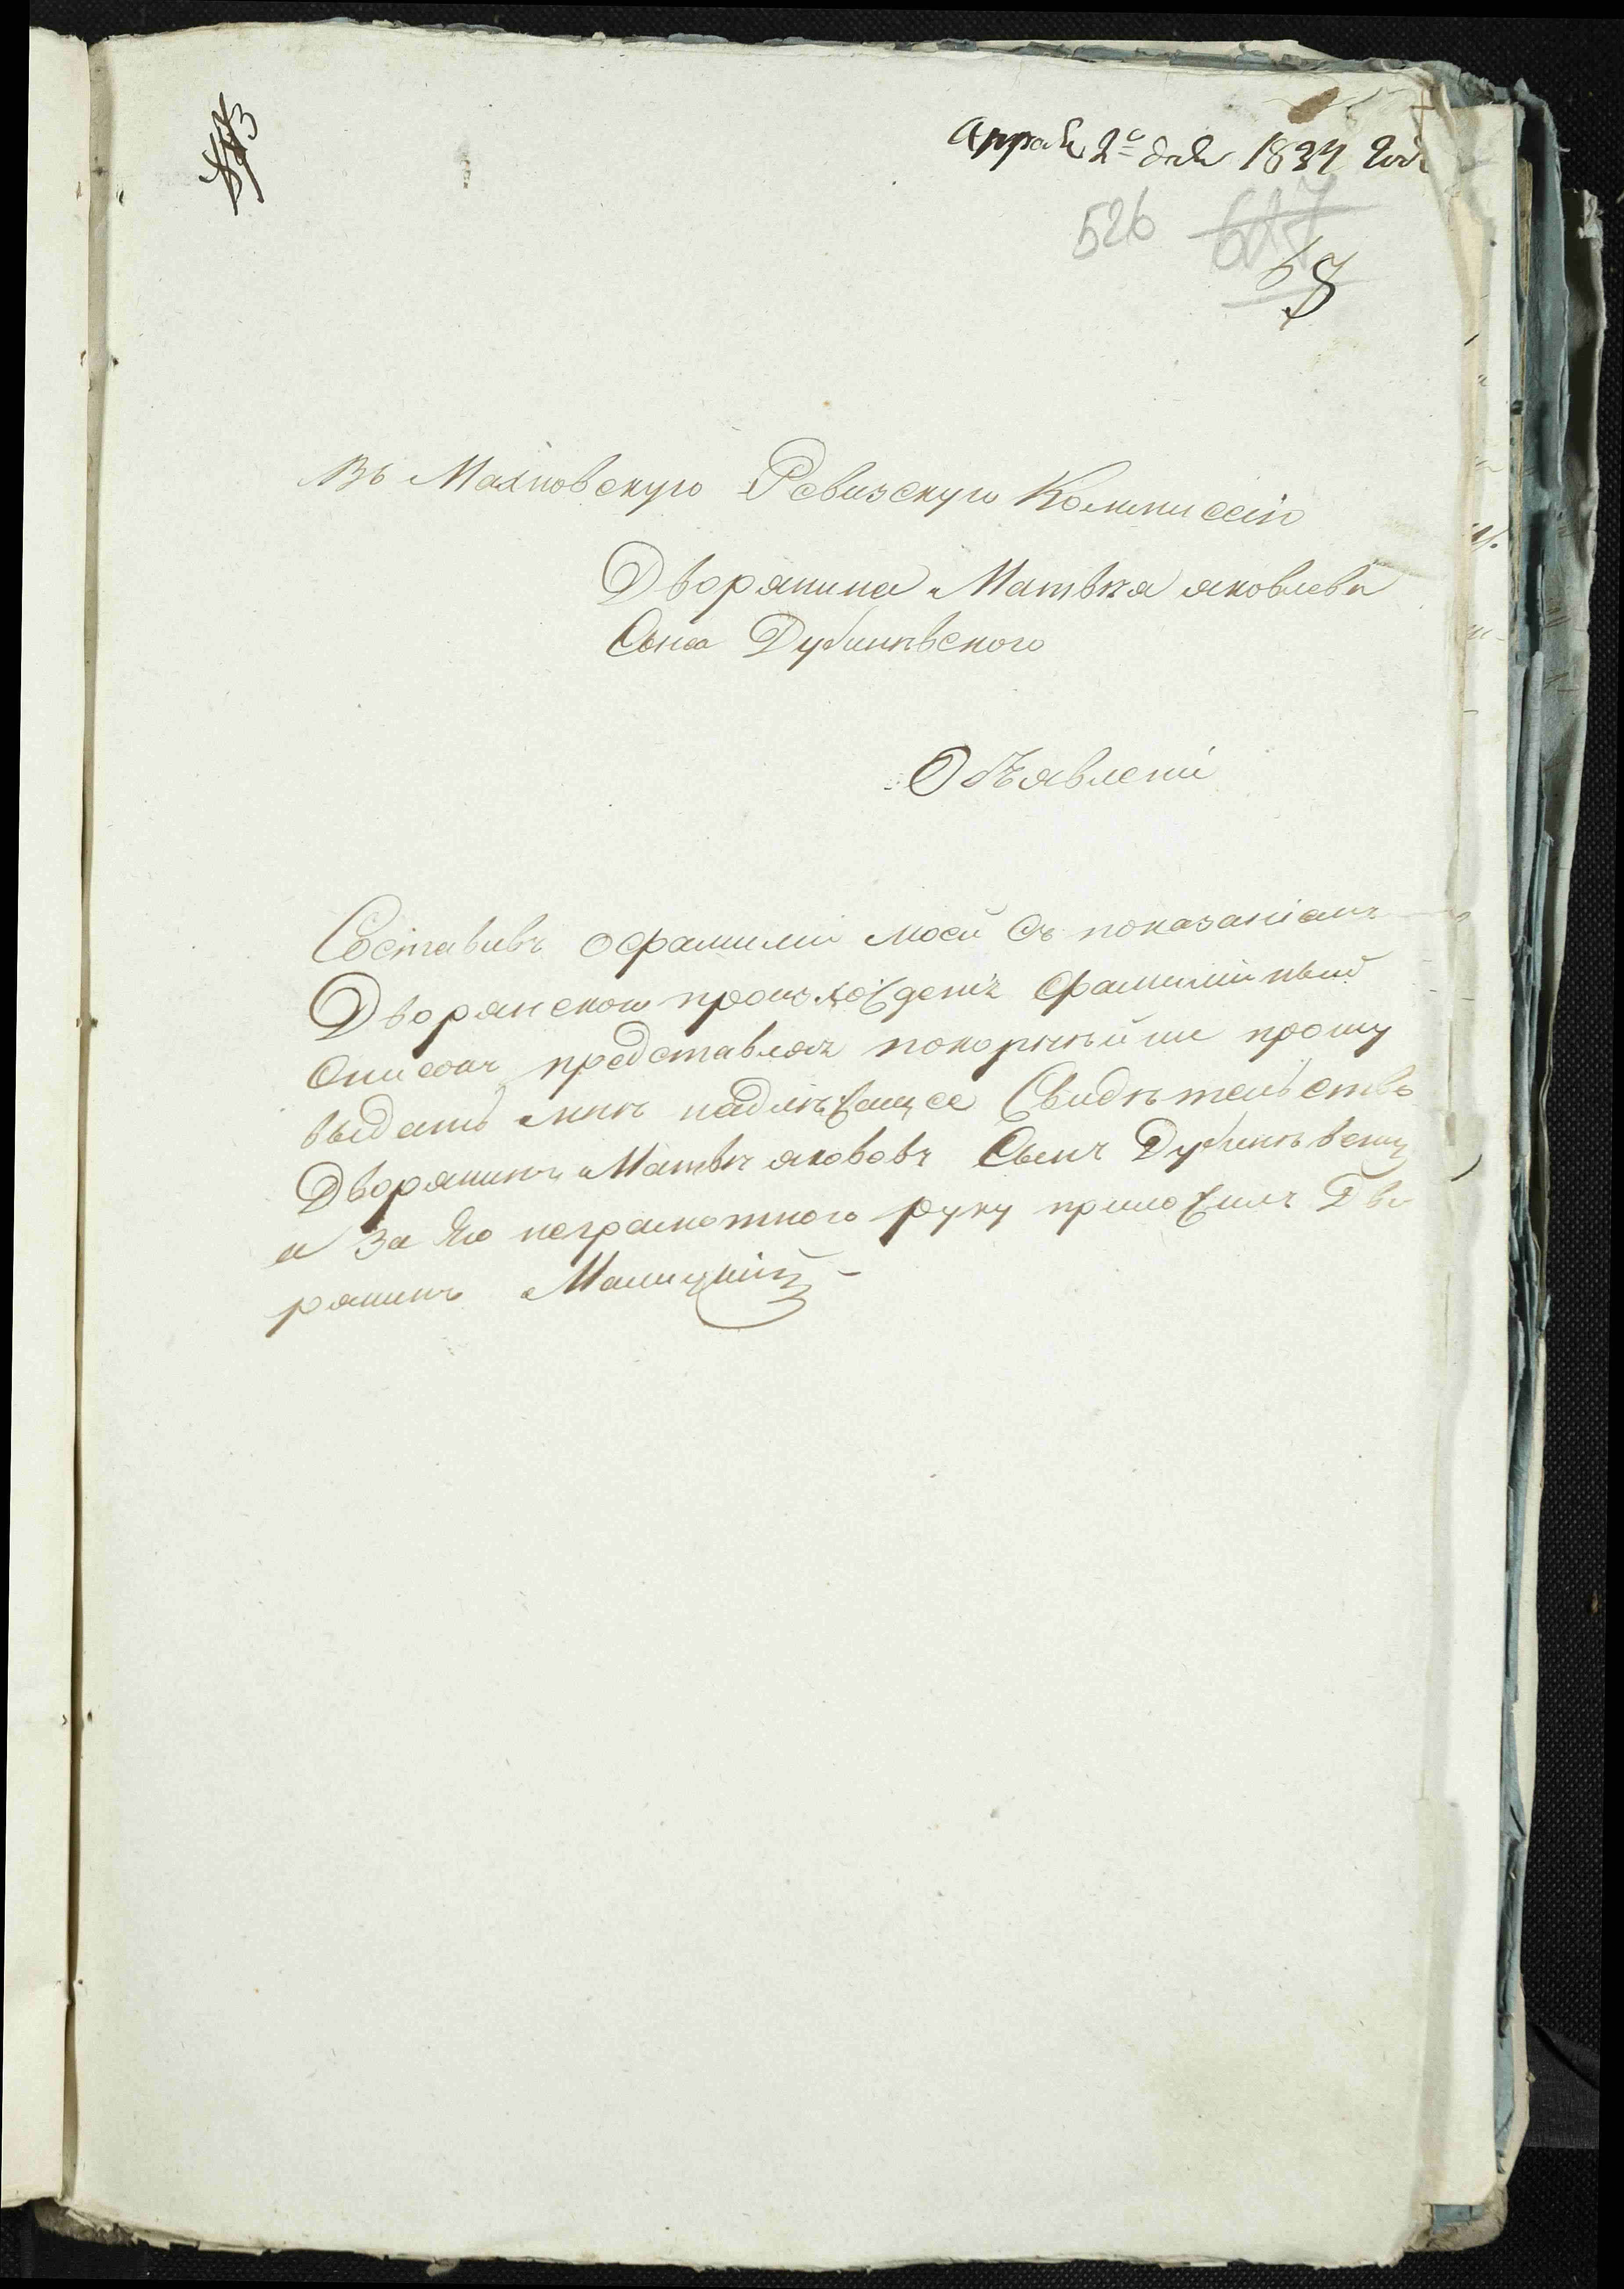 Апраля 2го дня 1834 года
526 617
68
Въ Махновскую Ревизскую Коммиссію
Дворянина Матвѣя яковлева
Сына Дубинѣвского
Объявленіи
Составивъ о фамиліи моей съ показаніамъ
Дворянского происхожденіи фамилійный
Описокъ представляя покорнѣйши прошу
выдать мнѣ надлѣжащее Свидѣтельство
Дворянинъ Матвѣ якововъ Сынъ Дубинѣвски
а За Его неграмотного руку приложилъ Дво
рянинъ Малицкій